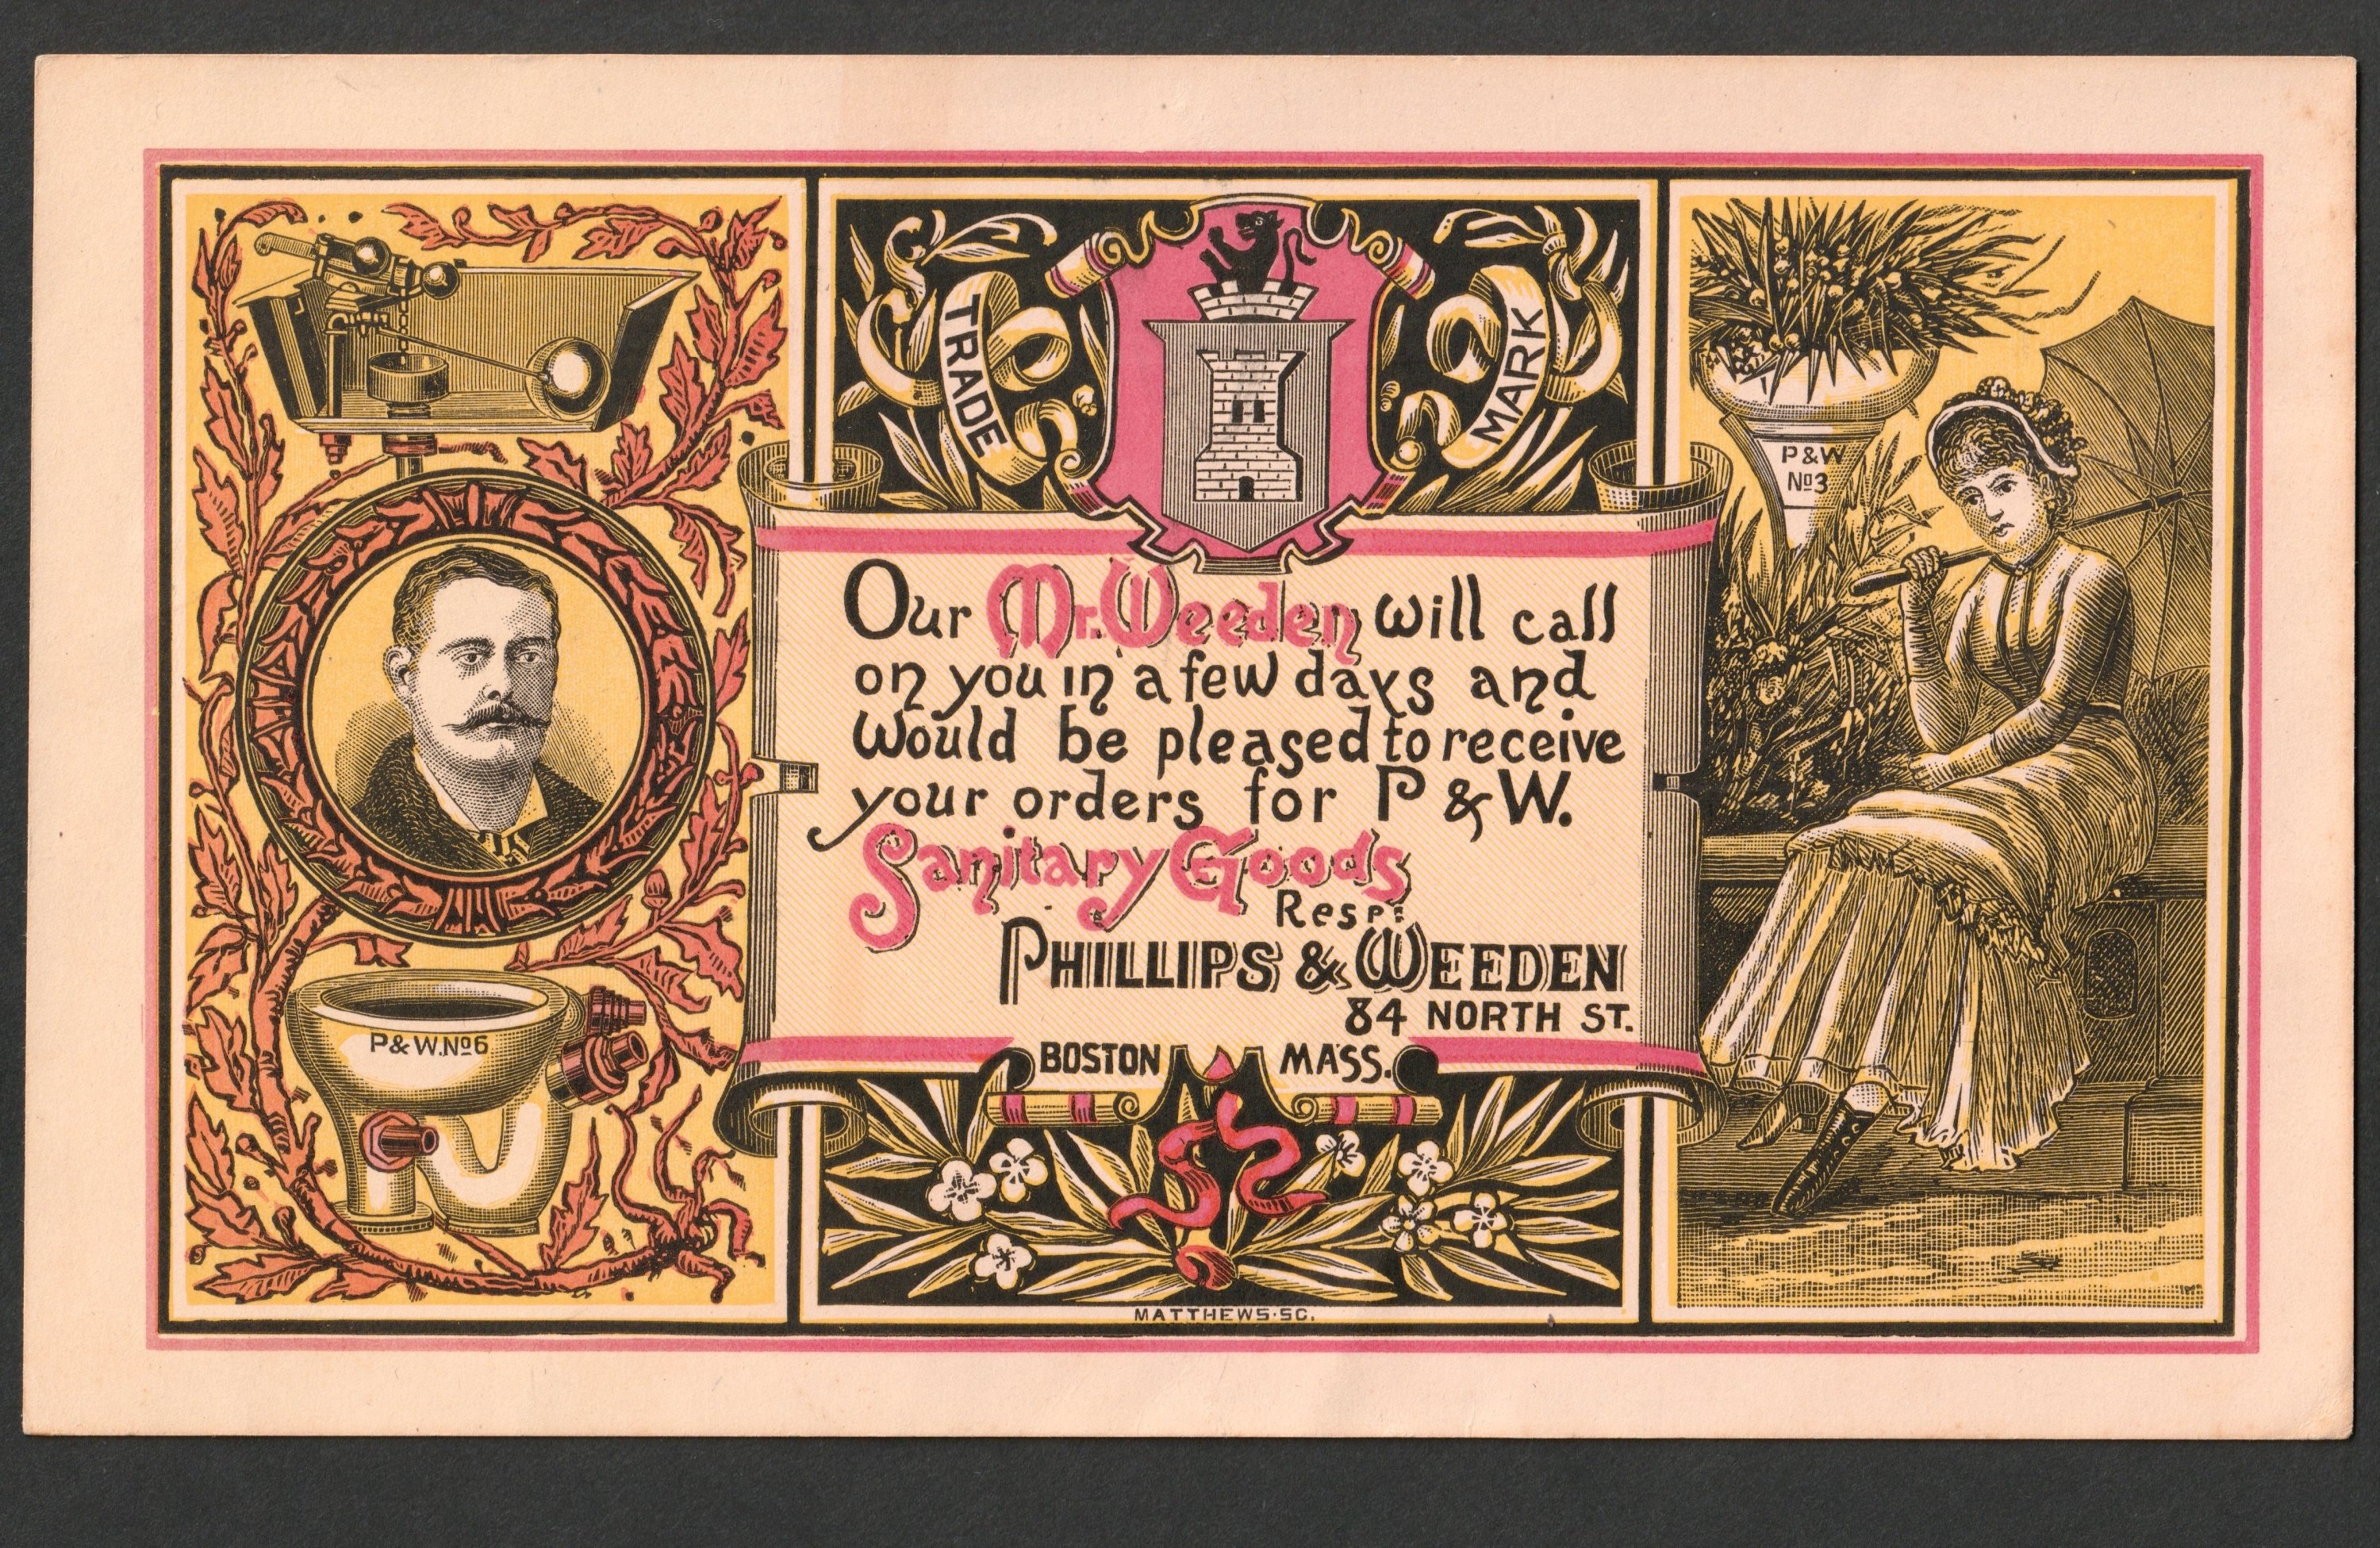 TRADE
MARK
P & W
No 3
Our Mr. Weeden will call
on you in a few days and
would be pleased to receive
your orders for P & W.
Sanitary Goods
Resp:
PHILLIPS & WEEDEN
84 NORTH ST.
BOSTON MASS.
P & W. No 6
MATTHEWS·SC.